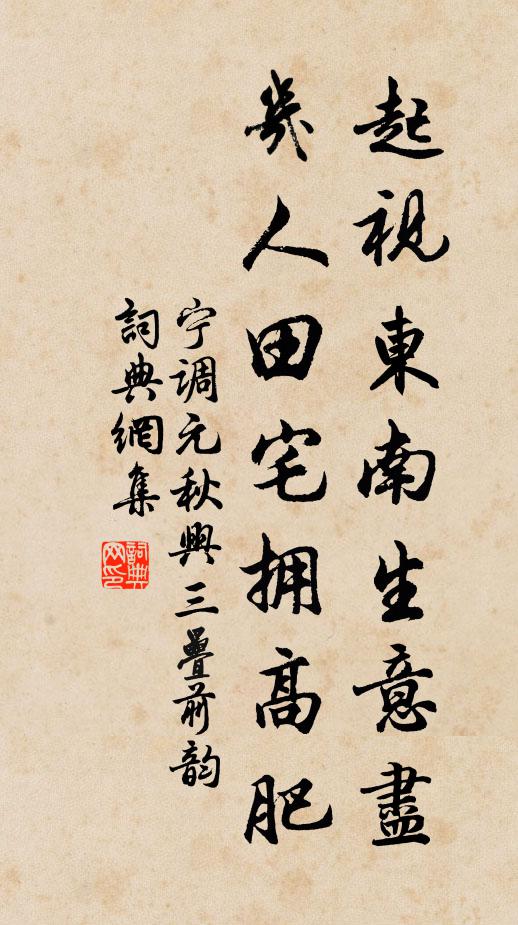 起視東南生意盡
幾人田宅拥高肥
宁調元秋興三疊前韵
詞典網集
詞典网印